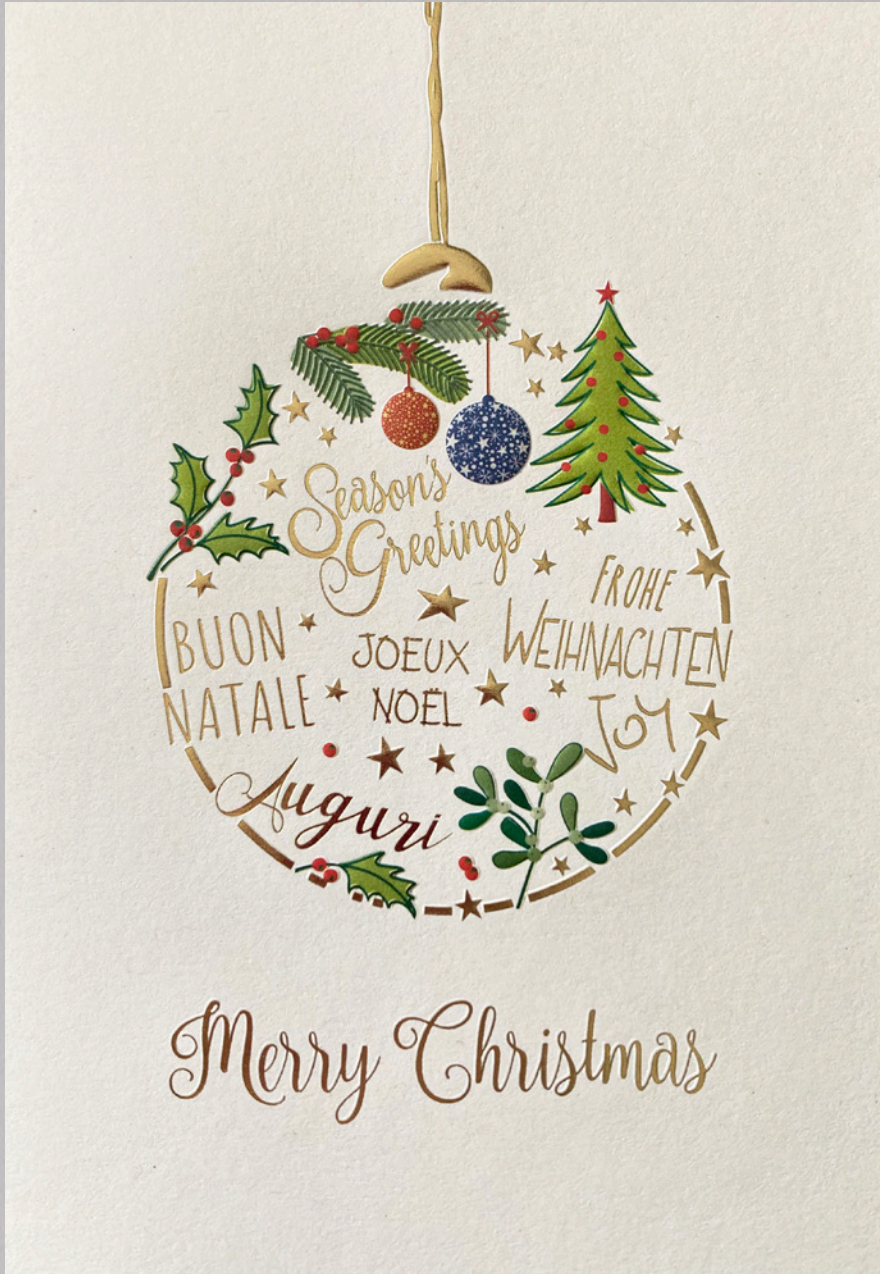 Season's
Greetings
FROHE
WEIHNACHTEN
BUON
NATALE
JOEUX
NOËL
JOY
Auguri
Merry Christmas